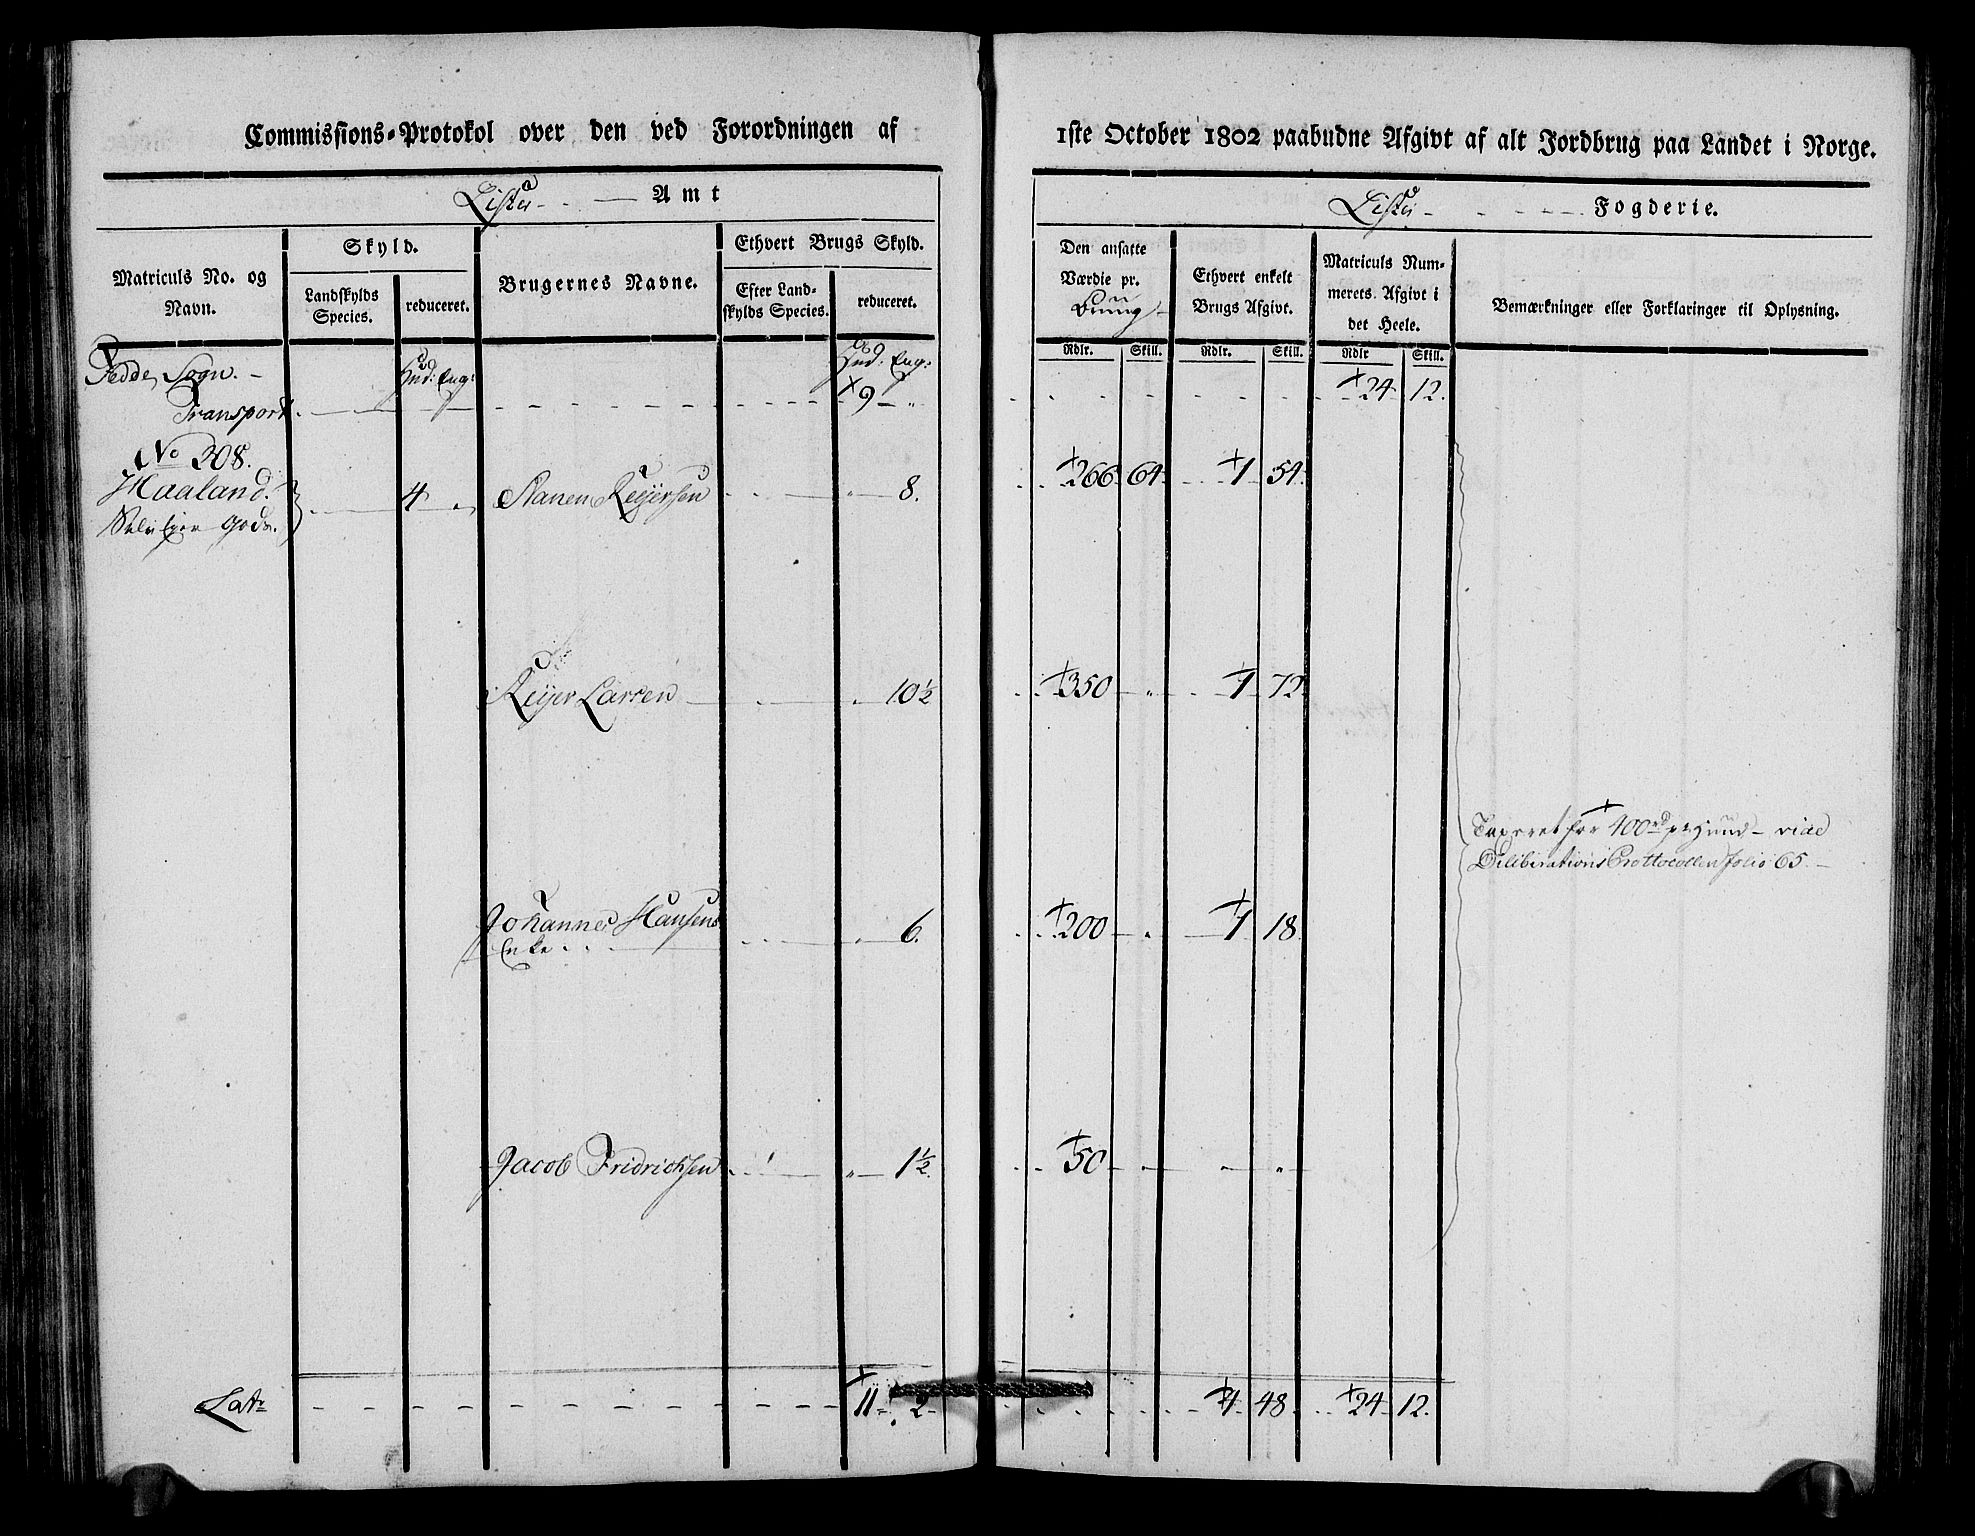 Commissions-Protokol over den ved Forordningen af
1ste October 1802 paabudne Afgivt af alt Jordbrug paa Landet i Norge.
Lister Amt
Lister Fogderie.
Matriculs No. og Navn.
Skyld.
Landskylds Species.
reduceret.
Brugernes Navne.
Ethvert Brugs Skyld.
Efter Land-
skylds Species.
reduceret.
Den ansatte
Værdie pr.
Ethvert enkelt
Brugs Afgivt.
Matriculs Num-
merets Afgivt i
det Heele.
Bemærkninger eller Forklaringer til Oplysning.
Rdlr. Skill. Rdlr. Skill. Rdlr Skill.
Fedde Sogn. Hud: Eng: Hud: Eng:
Transport 9 24 12.
No 308.
Haaland. 4 Stanen Reijersen 8. 266 64 1 54
Selv Eger Gods.
Reijer Larsen 10 1/2 350 1 72
Taxeret for 400 rd pr Hund vide
Deliberations Prottocollen folio 65
Johannes Hansens 6. 200 1 18
Enke
Jacob Fridrichsen 1 1/2. 50
Lat: 11 2 4 48 24 12.